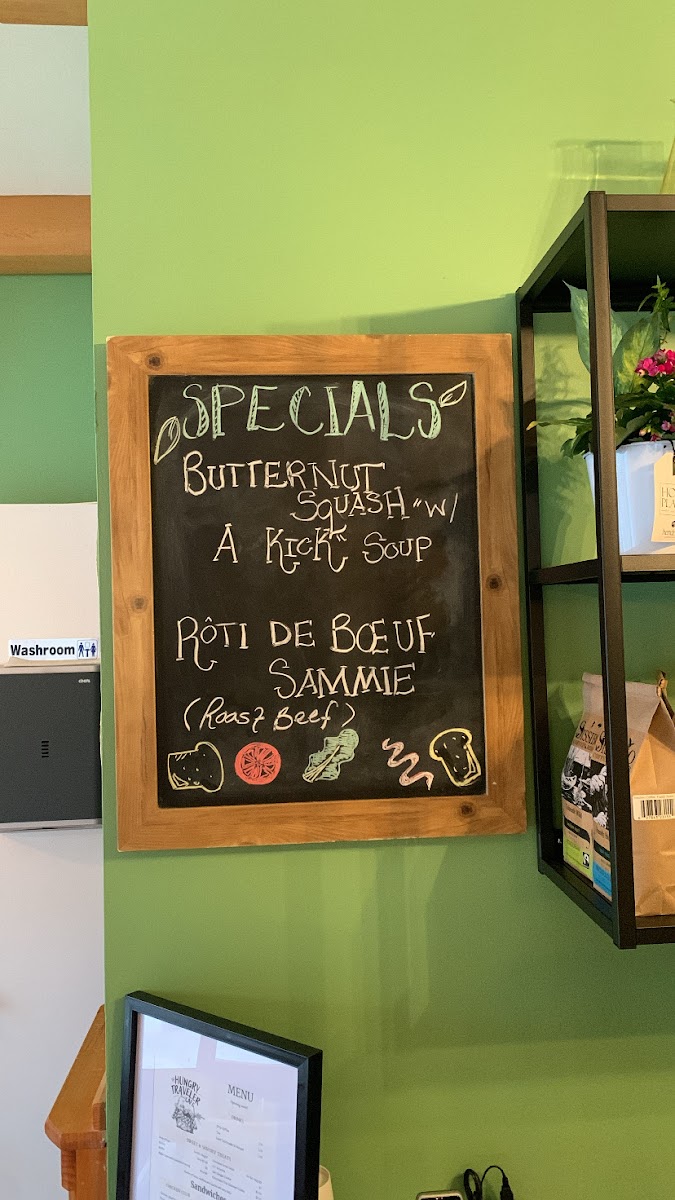 SPECIALS
BUTTERNUT
SQUASH "W/
A KICK" SOUP
RÔTI DE BŒUF
SAMMIE
(Roast Beef)
Washroom
HUNGRY
TRAVELER
MENU
Sandwiches